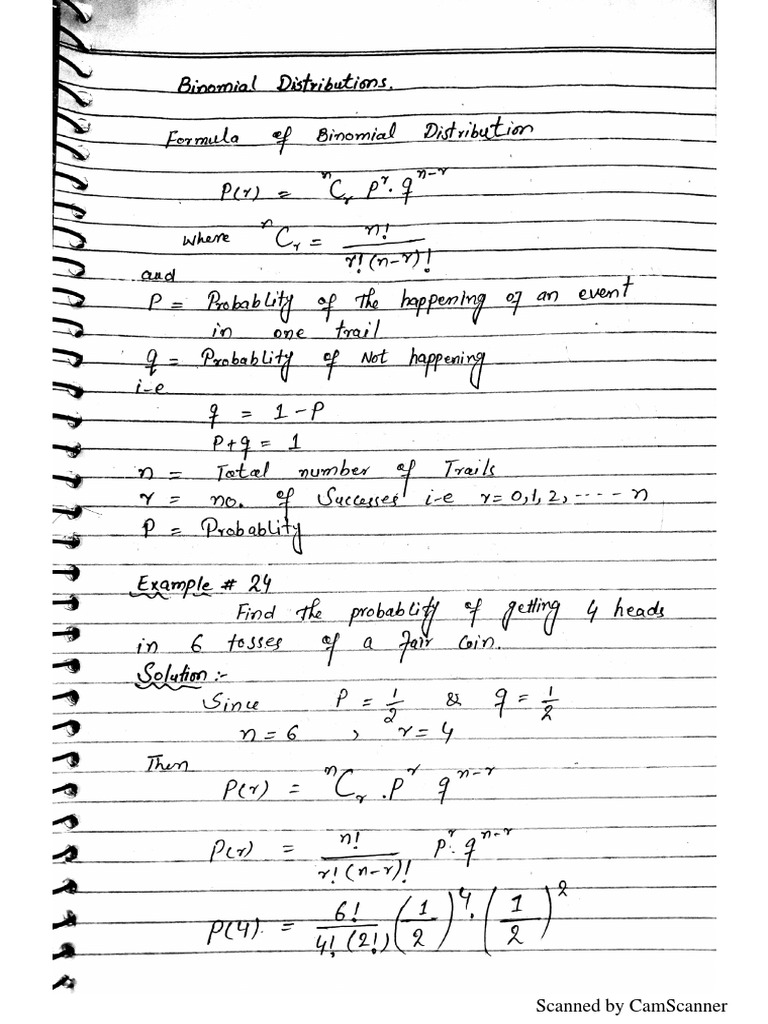 Binomial Distributions.
Formula of Binomial Distribution
P(r) = ⁿCᵣ pʳ. qⁿ⁻ʳ
where ⁿCᵣ = n! / r!(n-r)!
and
P = Probablity of the happening of an event
in one trail
q = Probablity of Not happening
i-e
q = 1-P
P+q = 1
n = Total number of Trails
r = no. of Successes i-e r=0,1,2,---- n
P = Probablity
Example # 24
Find the probablity of getting 4 heads
in 6 tosses of a fair coin.
Solution:-
Since P = 1/2 & q = 1/2
n=6 , r=4
Then
P(r) = ⁿCᵣ .pʳ qⁿ⁻ʳ
P(r) = n! / r!(n-r)! pʳ. qⁿ⁻ʳ
P(4). = 6! / 4!(2!) (1/2)⁴. (1/2)²
Scanned by CamScanner